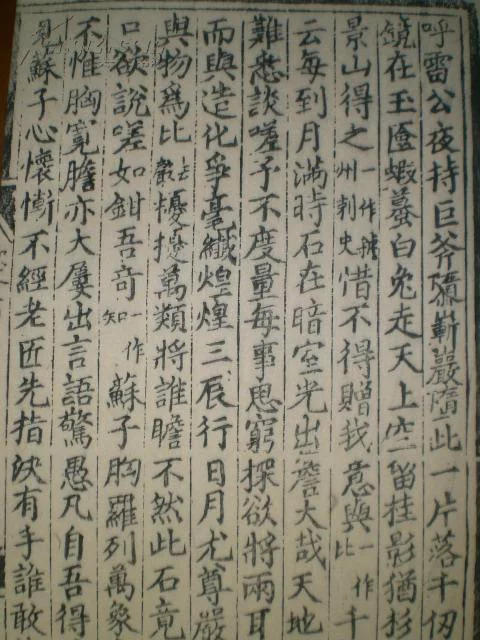 呼雷公夜持巨斧隳嶄巖隋此一片落千仞
鏡在玉匳蝦蟇白兔走天上空留桂影猶杉
景山得之一作州刺史惜不得贈我意與一作比千
云每到月滿時石在暗室光出簷大哉天地
難悉談嗟予不度量每事思窮探欲將兩耳
而與造化爭毫纖煌煌三辰行日月尤尊嚴
與物爲比去聲擾擾萬類將誰瞻不然此石竟
口欲說嗟如鉗吾奇一作知蘇子胸羅列萬象
不惟胸寬膽亦大屢出言語驚愚凡自吾得
見蘇子心懷慚不經老匠先指決有手誰敢